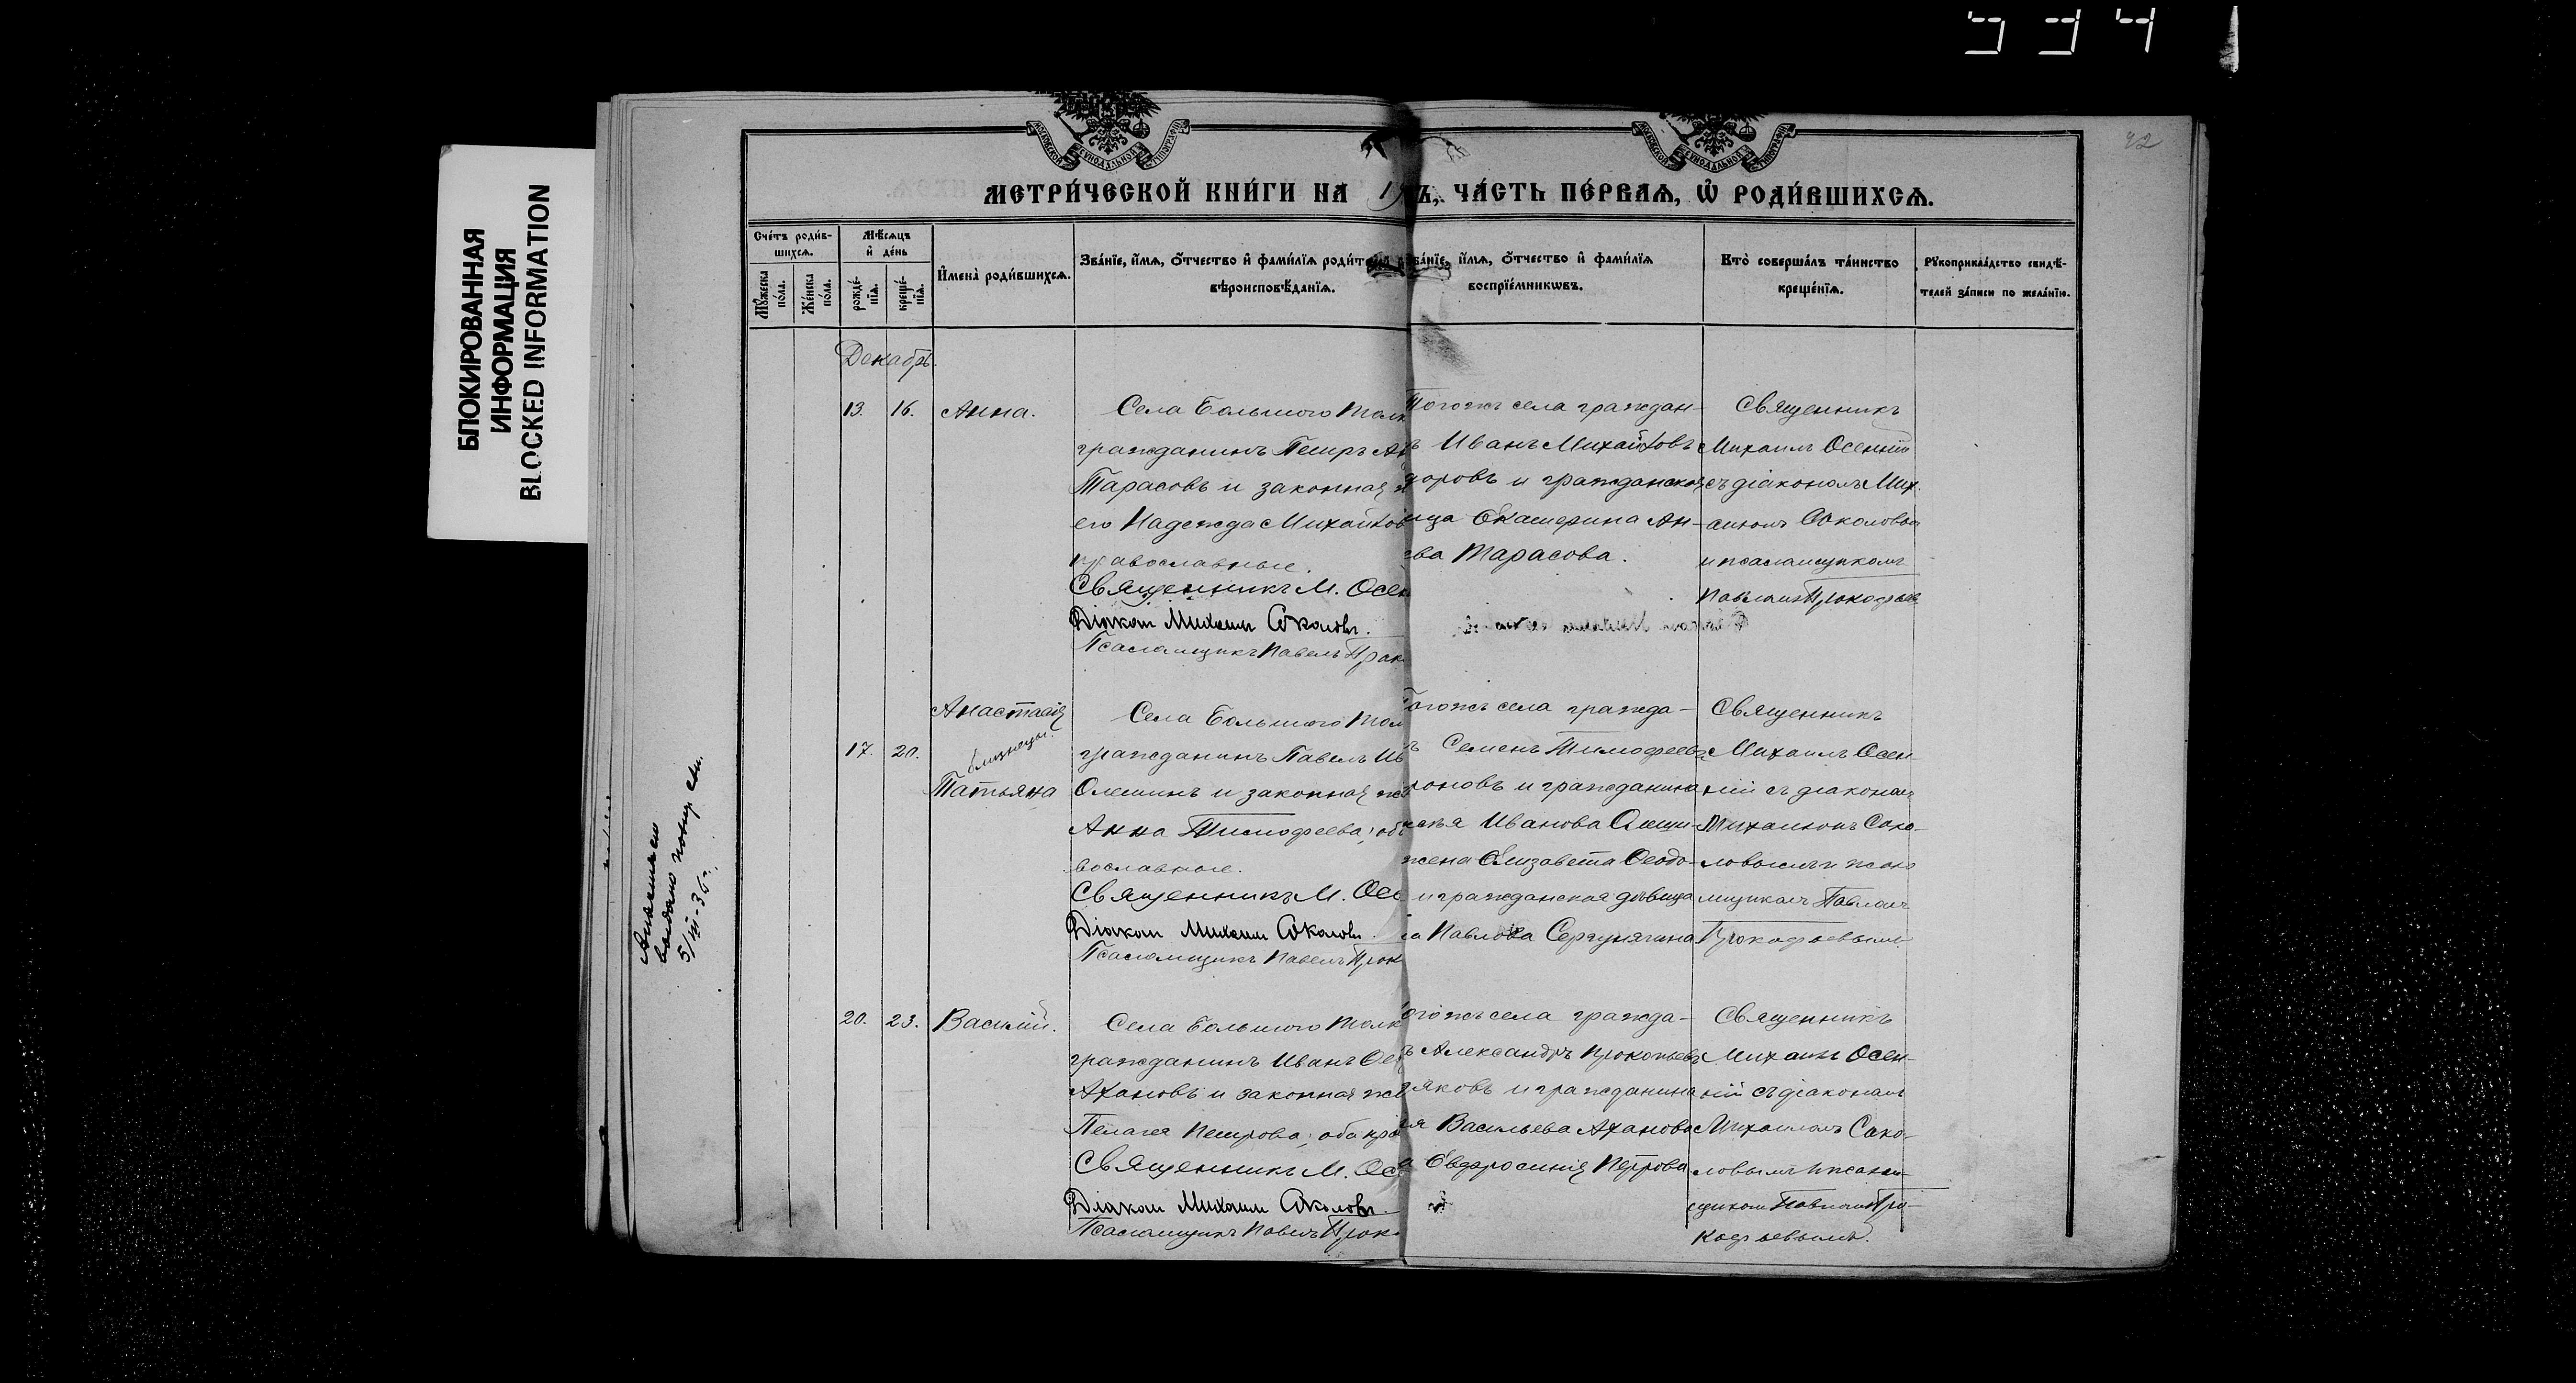 БЛОКИРОВАННАЯ
ИНФОРМАЦИЯ
BLOCKED INFORMATION
42
МОСКОВСКОЙ СѴНОДАЛЬНОЙ ТИПОГРАФІИ
МОСКОВСКОЙ СѴНОДАЛЬНОЙ ТИПОГРАФІИ
МЕТРИ́ЧЕСКОЙ КНИ́ГИ НА 19
Ъ, ЧА́СТЬ ПЕ́РВАѦ, Ѿ РОДИ́ВШИХСѦ.
Сче́тъ роди́в-
шихсѧ.
Мѣ́сѧцъ
и҆ де́нь
Мꙋ́жеска по́ла.
Же́нска по́ла.
рожде́-
нїѧ.
креще́-
нїѧ.
И҆мена̀ роди́вшихсѧ.
Зва́нїе, и҆́мѧ, ѻ҆́тчество и҆ фами́лїѧ роди́т
вѣроисповѣ́данїѧ.
ва́нїе, и҆́мѧ, ѻ҆́тчество и҆ фами́лїѧ
воспрїе́мникѡвъ.
Кто̀ соверша́лъ та́инство
креще́нїѧ.
Рꙋкоприкла́дство свидѣ́-
телей за́писи по жела́нїю.
Декабрь.
13. 16. Анна.
Села Большого Толк
гражданинъ Петръ Ан
Тарасовъ и законная ж
его Надежда Михайлов
православные.
Священникъ М. Осен
Діакон Михаил Соколовъ.
Псаломщикъ Павелъ Прок
Тогожъ села граждан-
ъ Иванъ Михайловъ
доровъ и гражданская
ица Екатерина Ан-
ева Тарасова.
Священникъ
Михаилъ Осенній
съ діакономъ Мих.
аиломъ Соколовым
и псаломщикомъ
Павломъ Прокофьев
Анастасія
близнецы.
17. 20.
Татьяна
Села Большого Тол
гражданинъ Павелъ Ив
Олешинъ и законная же
Анна Тимофеева; об
вославные.
Священникъ М. Осе
Діакон Михаил Соколовъ.
Псаломщикъ Павелъ Прок
Тогожъ села гражда-
ъ Семенъ Тимофеевъ
роновъ и гражданина
Иванова Олеши-
жена Елизавета Ѳеодо-
и гражданская дѣвица
Павлова Сергунягина
Священникъ
Михаилъ Осен-
ній съ діакономъ
Михаиломъ Соко-
ловымъ и псало
мщикомъ Павломъ
Прокофьевымъ
Анастасіи
выдано повтр св.
5/III-36г.
20. 23. Василій.
Села Большого Толк
гражданинъ Иванъ
Ахановъ и законная же
Пелагея Петрова; оба пра
Священникъ М. Осе
Діакон Михаил Соколовъ.
Псаломщикъ Павелъ Прок
огожъ села гражда-
ъ Александръ Прокопьевъ
яковъ и гражданина
ья Васильева Аханова
а Евфросинія Петрова
Священникъ
Михаилъ Осен-
ній съ діакономъ
Михаиломъ Соко-
ловымъ и псалом-
щиком Павломъ Про-
кофьевымъ.